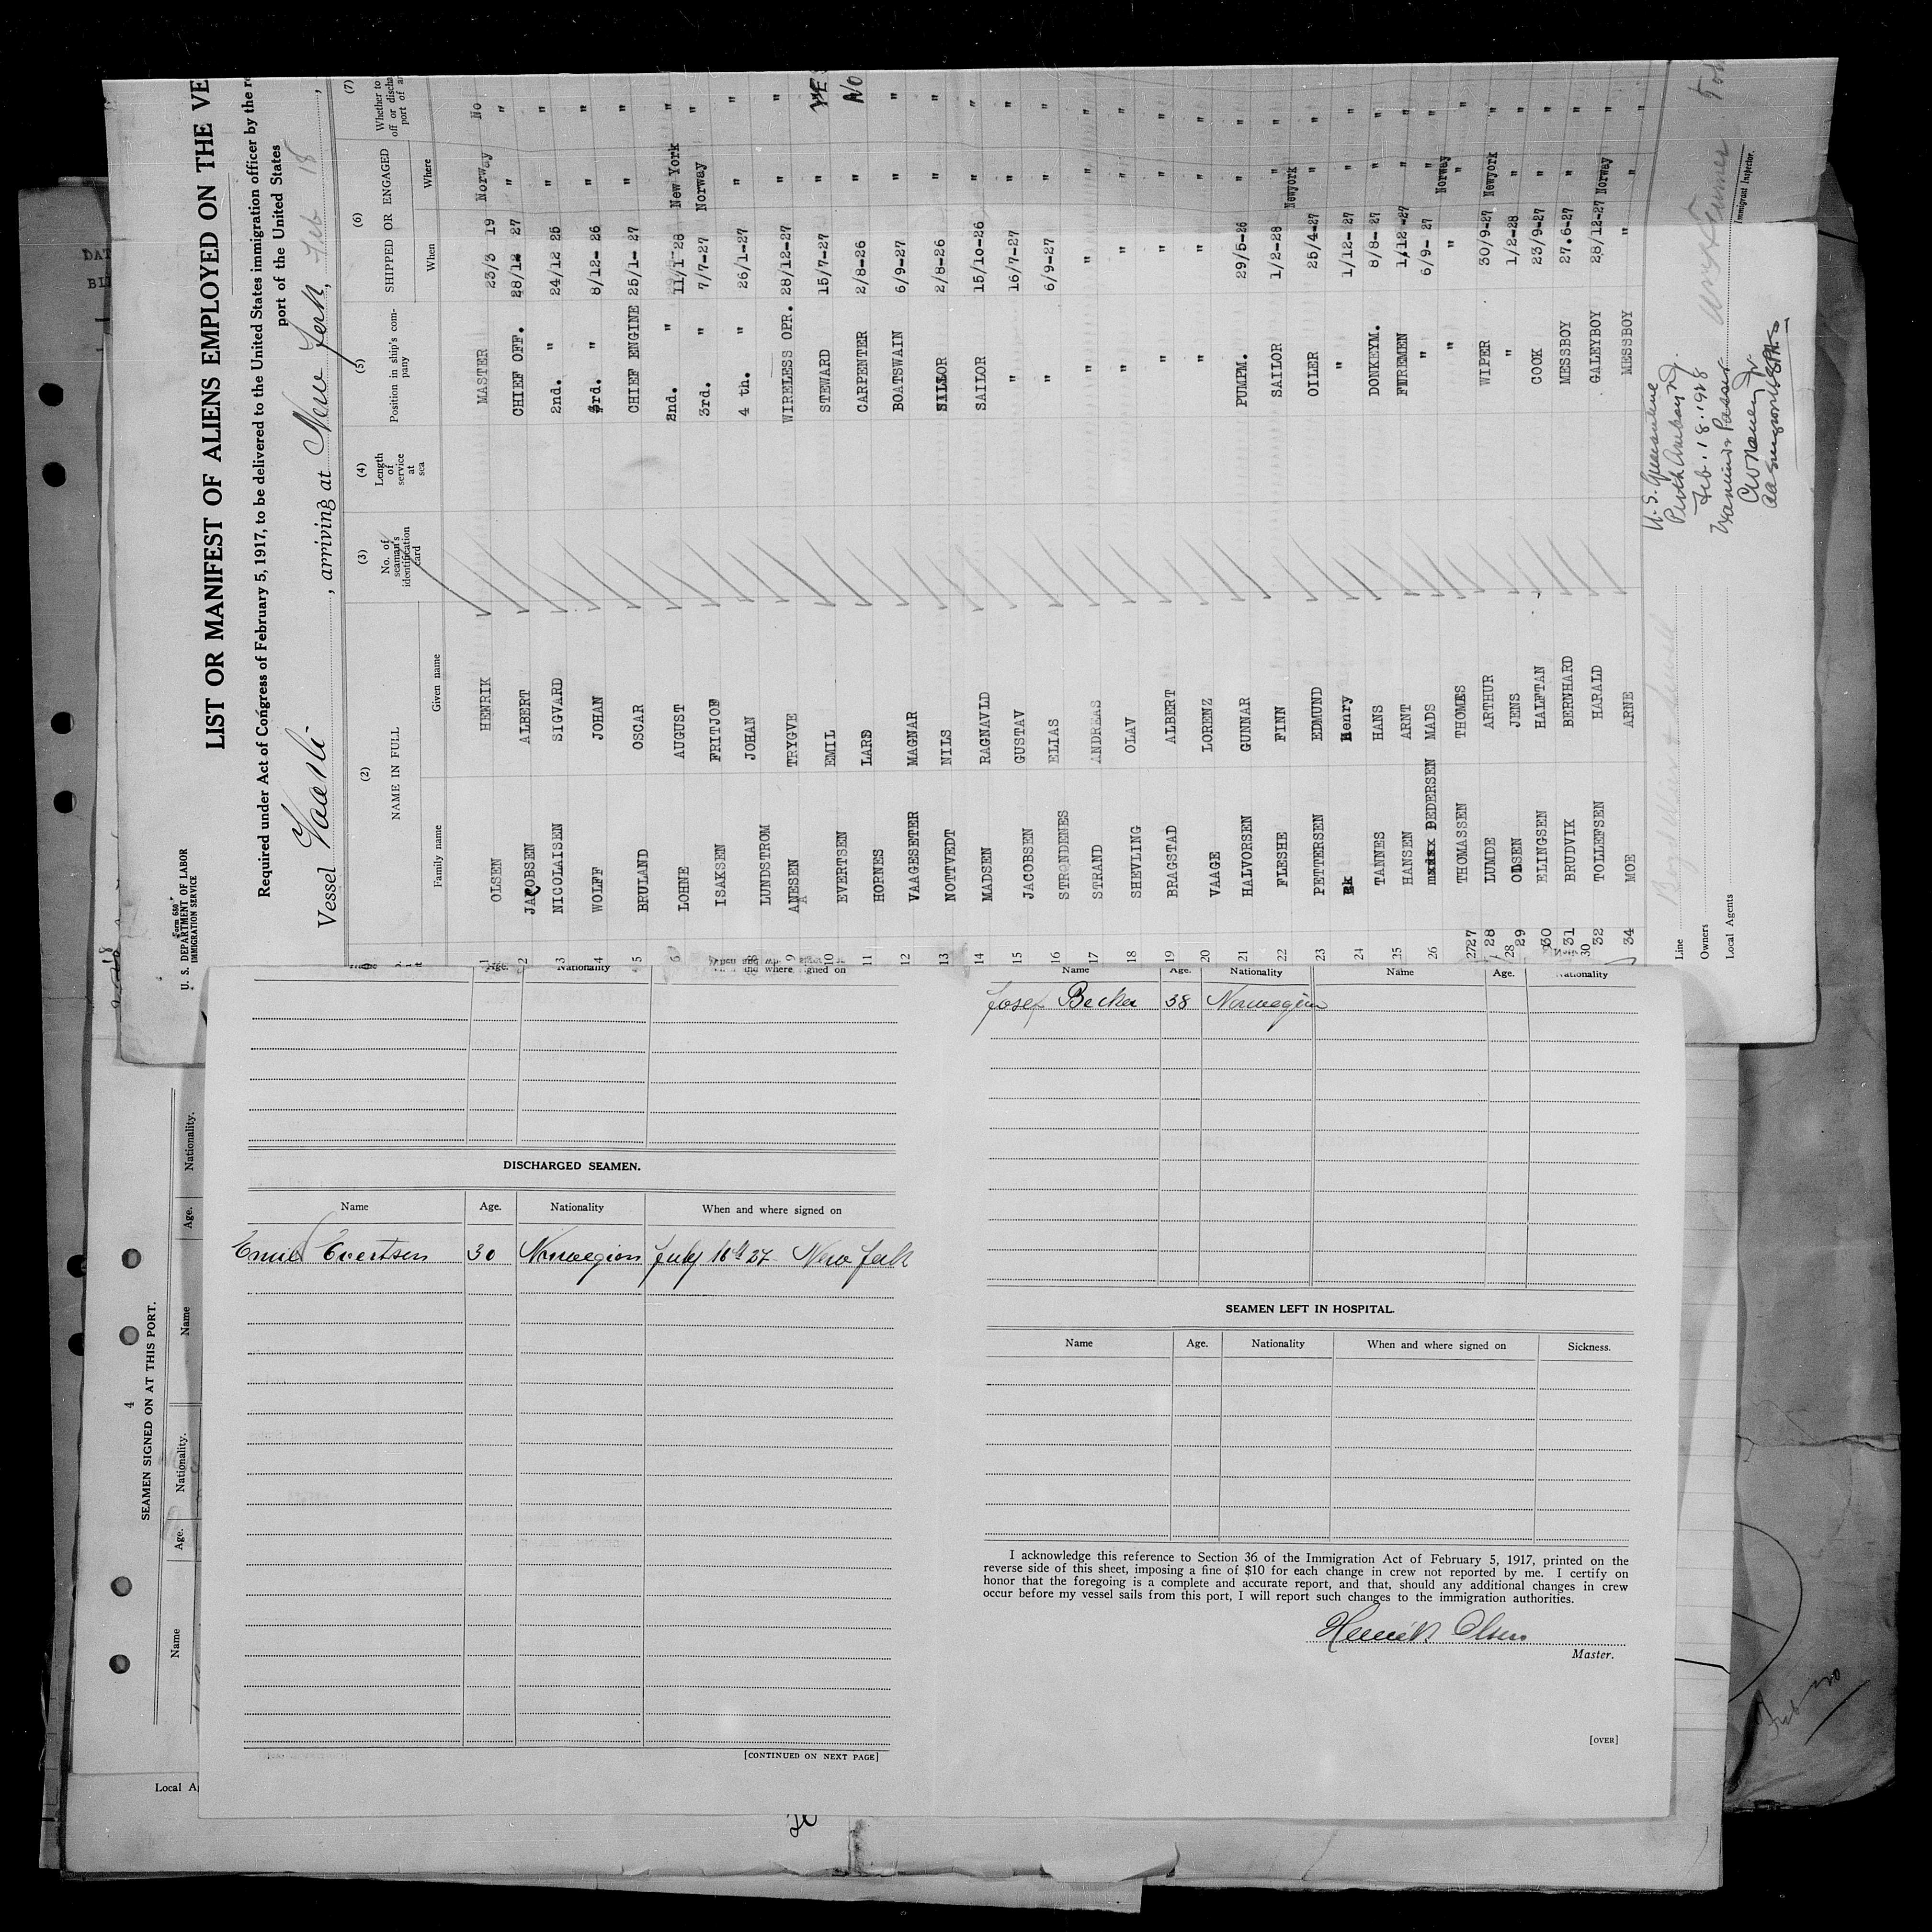 Form 680
U. S. DEPARTMENT OF LABOR
IMMIGRATION SERVICE
LIST OR MANIFEST OF ALIENS EMPLOYED ON THE VE
Required under Act of Congress of February 5, 1917, to be delivered to the United States immigration officer by the re
port of the United States
Vessel Vaarli, arriving at New York, Feb 18,
(2) (3) (4) (5) (6) (7)
NAME IN FULL No. of seaman's identification card Length of service at sea Position in ship's company SHIPPED OR ENGAGED Whether to
off or disch
port of
Family name Given name When Where
1 OLSEN HENRIK MASTER 23/3 19 Norway No
2 JACOBSEN ALBERT CHIEF OFF. 28/12 27 " "
3 NICOLAISEN SIGVARD 2nd. " 24/12 25 " "
4 WOLFF JOHAN 3rd. " 8/12- 26 " "
5 BRULAND OSCAR CHIEF ENGINE 25/1- 27 " "
6 LOHNE AUGUST 2nd. " 11/1-28 New York "
ISAKSEN FRITJOF 3rd. " 7/7-27 Norway "
8 LUNDSTROM JOHAN 4 th. " 26/1-27 " "
9 ANESEN TRYGVE WIRELESS OPR. 28/12-27 " "
10 EVERTSEN EMIL STEWARD 15/7-27 " YES
11 HORNES LARS CARPENTER 2/8-26 " NO
12 VAAGESETER MAGNAR BOATSWAIN 6/9-27 " "
13 NOTTVEDT NILS SAILOR 2/8-26 " "
14 MADSEN RAGNAVLD SAILOR 15/10-26 " "
15 JACOBSEN GUSTAV " 16/7-27 " "
16 STRONDENES ELIAS " 6/9-27 " "
17 STRAND ANDREAS " " " "
18 SHEVLING OLAV " " " "
19 BRAGSTAD ALBERT " " " "
20 VAAGE LORENZ " " " "
21 HALVORSEN GUNAR PUMPM. 29/5-26 " "
22 FLESHE FINN SAILOR 1/2-28 " "
23 PETTERSEN EDMUND OILER 25/4-27 Newyork "
24 Henry " 1/12- 27 " "
25 TANNES HANS DONKEYM. 8/8-27 " "
HANSEN ARNT FIREMEN 1/12-27 " "
26 PEDERSEN MADS " 6/9- 27 " "
27 THOMASSEN THOMAS " " Norway " "
28 LUMDE ARTHUR WIPER 30/9-27 Newyork "
29 OLSEN JENS " 1/2-28 " "
30 ELINGSEN HALFTAN COOK 23/9-27 " "
31 BRUDVIK BERNHARD MESSBOY 27.6-27 " "
32 TOLLEFSEN HARALD GALEYBOY 28/12-27 Norway "
34 MOE ARNE MESSBOY " " "
Line
Owners
Local Agents
U. S. Quarantine
Perth Amboy N.J.
Feb. 18. 1928
Immigrant Inspector.
Name Age. Nationality Name Age. Nationality
Josef Becker 38 Norwegian
DISCHARGED SEAMEN.
Name Age. Nationality When and where signed on
Emil Evertsen 30 Norwegian July 16th 27 New York
[CONTINUED ON NEXT PAGE]
SEAMEN LEFT IN HOSPITAL.
Name Age. Nationality When and where signed on Sickness.
I acknowledge this reference to Section 36 of the Immigration Act of February 5, 1917, printed on the
reverse side of this sheet, imposing a fine of $10 for each change in crew not reported by me. I certify on
honor that the foregoing is a complete and accurate report, and that, should any additional changes in crew
occur before my vessel sails from this port, I will report such changes to the immigration authorities.
Henrik Olsen
Master.
[OVER]
4
SEAMEN SIGNED ON AT THIS PORT.
Name Age. Nationality. Name Age. Nationality.
Local A